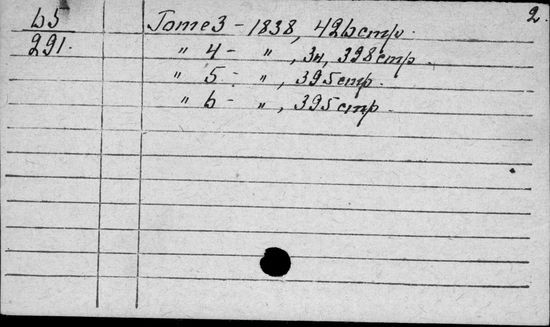 2.
Б5
291.
Tome 3 - 1838, 426 стр.
" 4 - ", 3н, 398 стр.
" 5 - ", 395 стр.
" 6 - ", 395 стр.